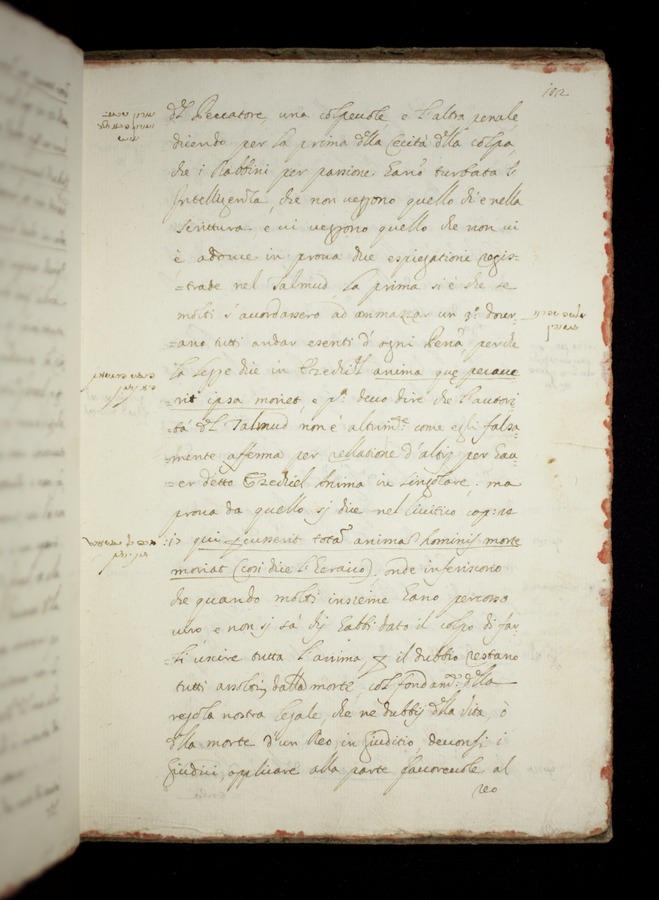 102
del Peccatore, una colpeuole, e l'altra penale
dicendo per la prima della Cecità della colpa,
che i Rabbini per passione hano turbata l'
Intelligenza, che non veggono quello ch'è nella
scrittura, e vi veggono quello che non vi
è adduce in prova due espiegatione regis=
=trade nel Talmud, la prima si è che se
molti s'accordassero ad ammazzar un 3º: dour=
=ano tutti andar esenti d'ogni Pena, perche
la legge dice in Ezechiel anima que pecaue
=rit ipsa moriet, e pª: deuo dire che l'autori
=tà del Talmud non è altrimte: come egli falsa
=mente afferma per rellatione d'altrj per hau=
=er detto Ezechiel Anima in singolare, ma
prova da quello si dice nel Leuitico cap: 24
:17 qui percusserit tota anima hominis morte
moriat (cosi dice l'hebraico), onde inferiscono
che quando molti insieme hano percosso
uno, e non si sà chj habbi dato il colpo di far
=li uscire tutta l'anima, p il dubbio restano
tutti assolti dalla morte, col fondamto: della
regola nostra legale, che ne dubbij della vita, ò
della morte d'un Reo, in Giuditio, deuonsi i
Giudici applicare alla parte fauoreuole al
reo